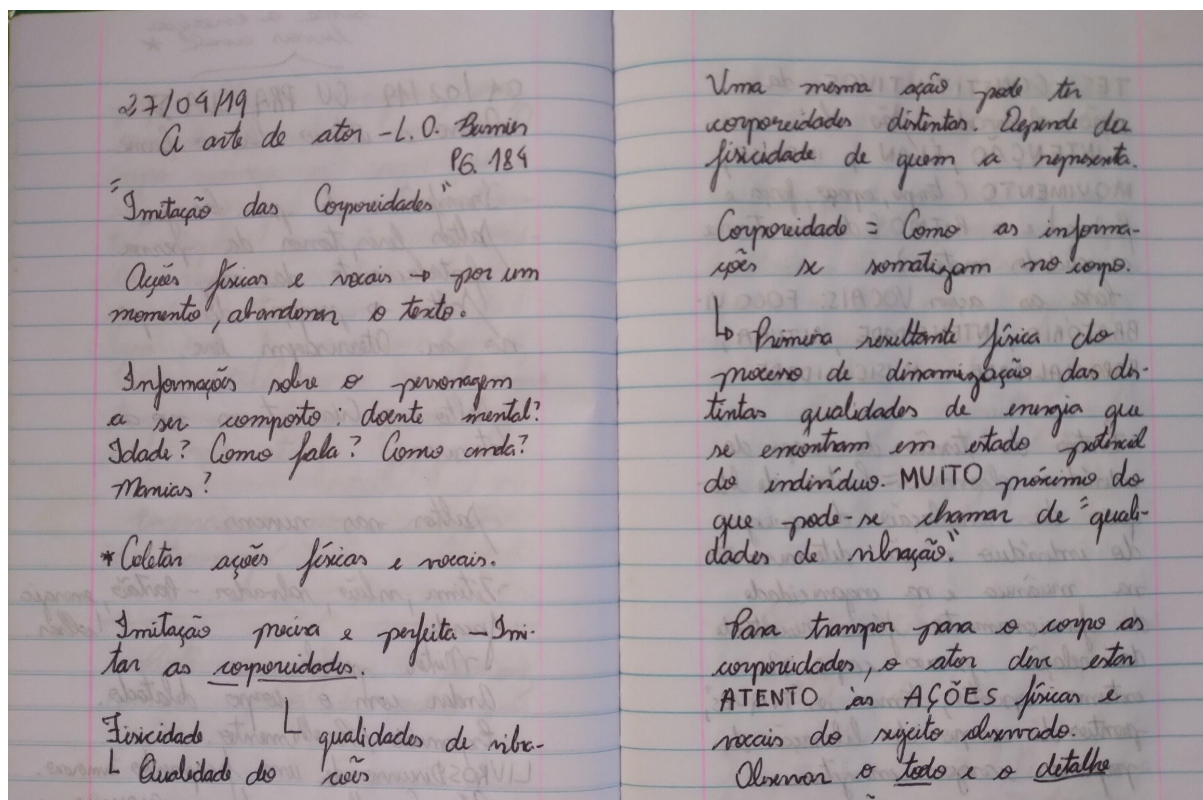 27/04/19
A arte de ator - L. O. Burnier
PG. 184
"Imitação das Corporeidades"
Ações físicas e vocais → por um
momento, abandonar o texto.
Informações sobre o personagem
a ser composto: doente mental?
Idade? Como fala? Como anda?
Manias?
* Coletar ações físicas e vocais.
Imitação precisa e perfeita - Imi-
tar as corporeidades.
Fisicidade └ qualidades de vibra-
└ Qualidade do ções
Uma mesma ação pode ter
corporeidades distintas. Depende da
fisicidade de quem a representa.
Corporeidade = Como as informa-
ções se somatizam no corpo.
↳ Primeira resultante física do
processo de dinamização das dis-
tintas qualidades de energia que
se encontram em estado potencial
do indivíduo. MUITO próximo do
que pode-se chamar de "quali-
dades de vibração."
Para transpor para o corpo as
corporeidades, o ator deve estar
ATENTO às AÇÕES físicas e
vocais do sujeito observado.
Observar o todo e o detalhe